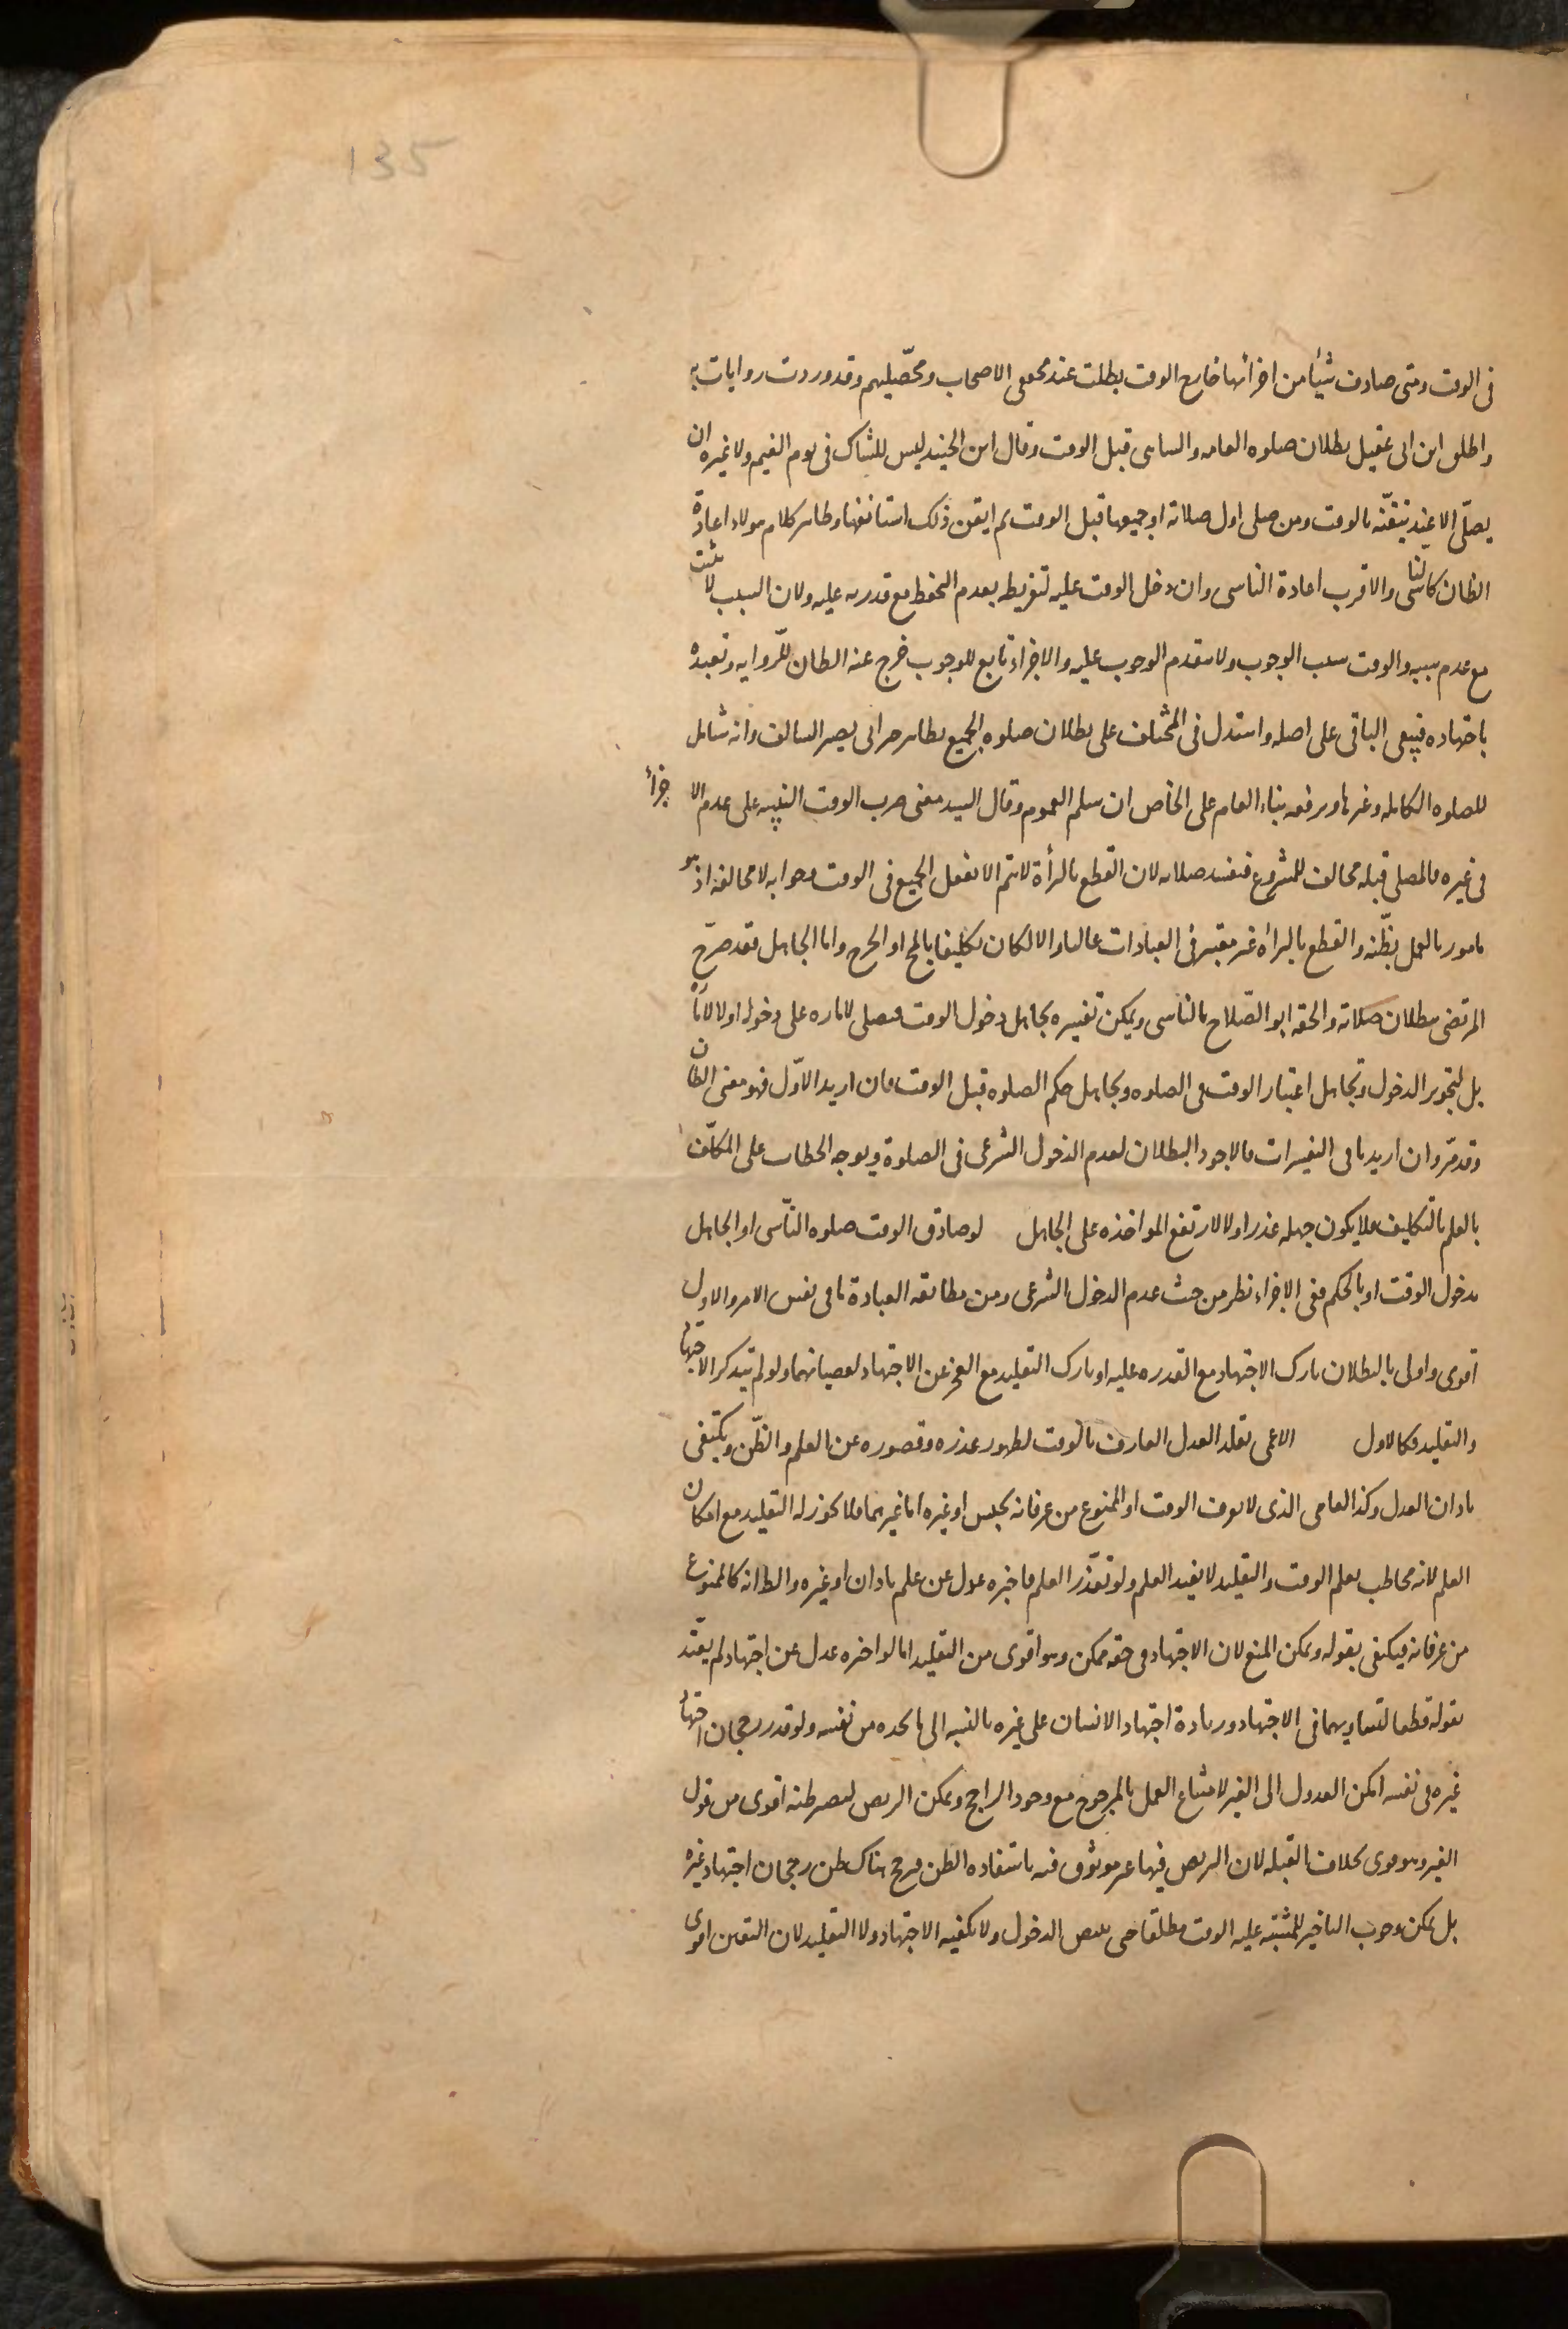 135
فى الوقت ومتى صادف شيئا من اجزائها خارج الوقت بطلت عند محققى الاصحاب ومحصّليهم وقد وردت روايات به
واطلق ابن ابى عقيل بطلان صلوة العامد والساهى قبل الوقت وقال ابن الجنيد ليس للشاك فى يوم الغيم ولا غيره ان
يصلّى الا عند تيقّنه بالوقت ومن صلى اول صلاته او جميعها قبل الوقت ثم ايقن ذلك استانفها وظاهر كلام هولاء اعادة
الظان كالناسى والاقرب اعادة الناسى وان دخل الوقت عليه لتفريطه بعدم التحفظ مع قدرته عليه ولان السبب لا يثبت
مع عدم سببه والوقت سبب الوجوب ولا يتقدم الوجوب عليه والاجزاء تابع للوجوب خرج عنه الظان للّرواية وتعبده
باجتهاده فيبقى الباقى على اصله واستدل فى المختلف على بطلان صلوة الجميع بظاهر خبر ابى بصير السالف وانه شامل
للصلوة الكاملة وغيرها ويرفعه بناء العام على الخاص ان سلم العموم وقال السيد معنى ضرب الوقت التنبيه على عدم الاجزأ
فى غيره فالمصلى قبله مخالف للمشروع فتفسد صلاته لان القطع بالبرأة لا يتم الا بفعل الجميع فى الوقت وجوابه لا مخالفة اذ هو
مامور بالعمل بظّنه والقطع بالبرأة غير معتبر فى العبادات غالبا والا لكان تكليفا بالمح او الحرج واما الجاهل فقد صرّح
المرتضى ببطلان صلاته والحقه ابو الصّلاح بالناسى ويمكن تفسيره بجاهل دخول الوقت فيصلى لامارة على دخوله او لا لامارة
بل لتجويز الدخول وبجاهل اعتبار الوقت فى الصلوة وبجاهل حكم الصلوة قبل الوقت فان اريد الاوّل فهو معنى الظان
وقد مرّ وان اريد باقى التفسيرات فالاجود البطلان لعدم الدخول الشرعى فى الصلوة وتوجه الخطاب على المكلّف
بالعلم بالتكليف فلا يكون جهله عذرا والا لارتفع المواخذة على الجاهل لو صادف الوقت صلوة النّاسى او الجاهل
بدخول الوقت او بالحكم ففى الاجزاء نظر من حيث عدم الدخول الشرعى ومن مطابقة العبادة ما فى نفس الامر والاول
اقوى واولى بالبطلان تارك الاجتهاد مع القدرة عليه او تارك التقليد مع العجز عن الاجتهاد لعصيانهما ولو لم يتذكر الاجتهاد
والتقليد فكالاول الاعمى يقلد العدل العارف بالوقت لظهور عذره وقصوره عن العلم والظّن ويكتفى
باذان العدل وكذا العامى الذى لا يعرف الوقت او الممنوع من عرفانه بحبس او غيره اما غيرهما فلا يجوز له التقليد مع امكان
العلم لانه مخاطب بعلم الوقت والتقليد لا يفيد العلم ولو تعذّر العلم فاخبره عدل عن علم باذان او غيره والظ انه كالممنوع
من عرفانه فيكتفى بقوله ويمكن المنع لان الاجتهاد فى حقه ممكن وهو اقوى من التقليد اما لو اخبره عدل عن اجتهاد لم يعتد
بقوله قطعا لتساويهما فى الاجتهاد وزيادة اجتهاد الانسان على غيره بالنسبة الى ما يجده من نفسه ولو قدر رجحان اجتهاد
غيره فى نفسه امكن العدول الى الغير لامتناع العمل بالمرجوح مع وجود الراجح ويمكن التربص ليصير ظنه اقوى من قول
الغير وهو قوى بخلاف القبلة لان التربص فيها غير موثوق فيه باستفادة الظن فيرجح هناك ظن رجحان اجتهاد غيره
بل يمكن وجوب التاخير للمشتبه عليه الوقت مطلقا حتى يتيقن الدخول ولا يكفيه الاجتهاد ولا التقليد لان اليقين اقوى